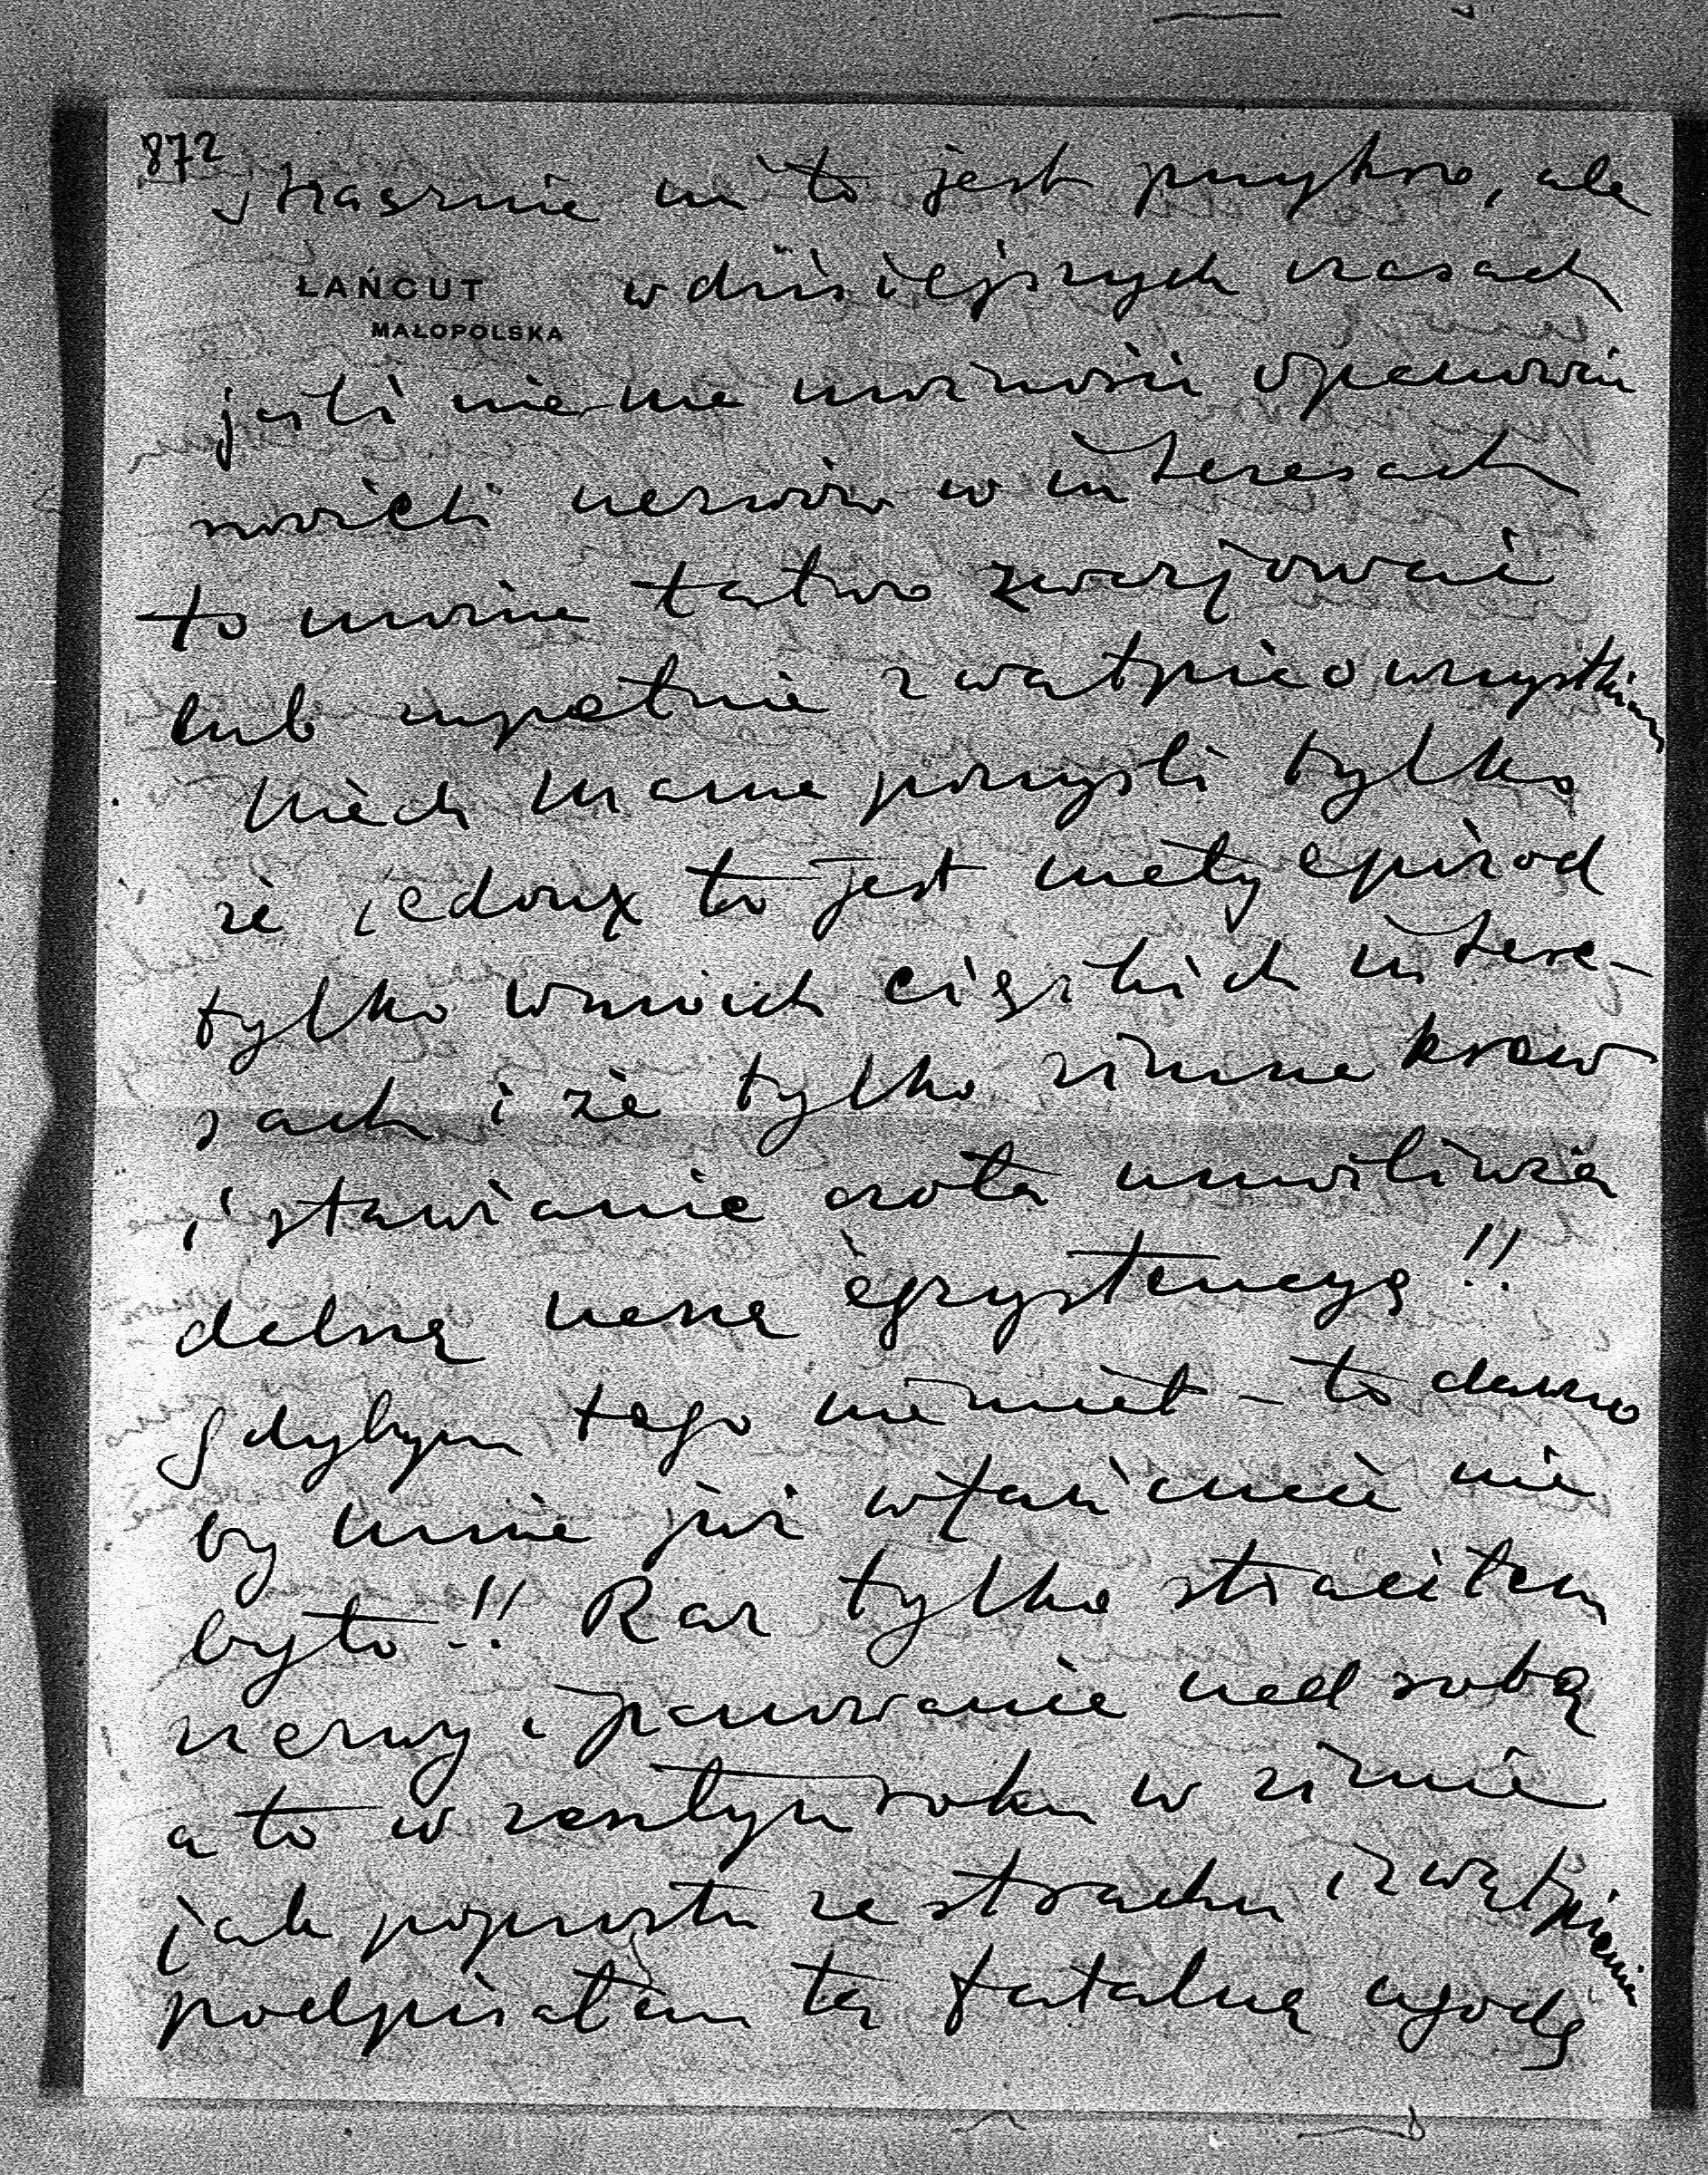 872
strasznie mi to jest przykro, ale
ŁAŃCUT
MAŁOPOLSKA
w dzisiejszych czasach
jeśli nie ma możności opanowań
swoich nerwów w interesach
to można łatwo zwarjować
lub zupełnie zwątpić o wszystkiem
Niech Mama pomyśli tylko
że jedoux to jest mały epizod
tylko w moich ciężkich intere-
sach i że tylko zimna krew
i stawianie czoła umożliwia
dalszą naszą egzystencyę!!
Gdybym tego nie miał – to dawno
by mnie już w Łańcucie nie
było!! Raz tylko straciłem
nerwy i panowanie nad sobą
a to w zeszłym roku w zimie
jak poprostu ze strachu i zwątpienia
podpisałem tą fatalną ugodę